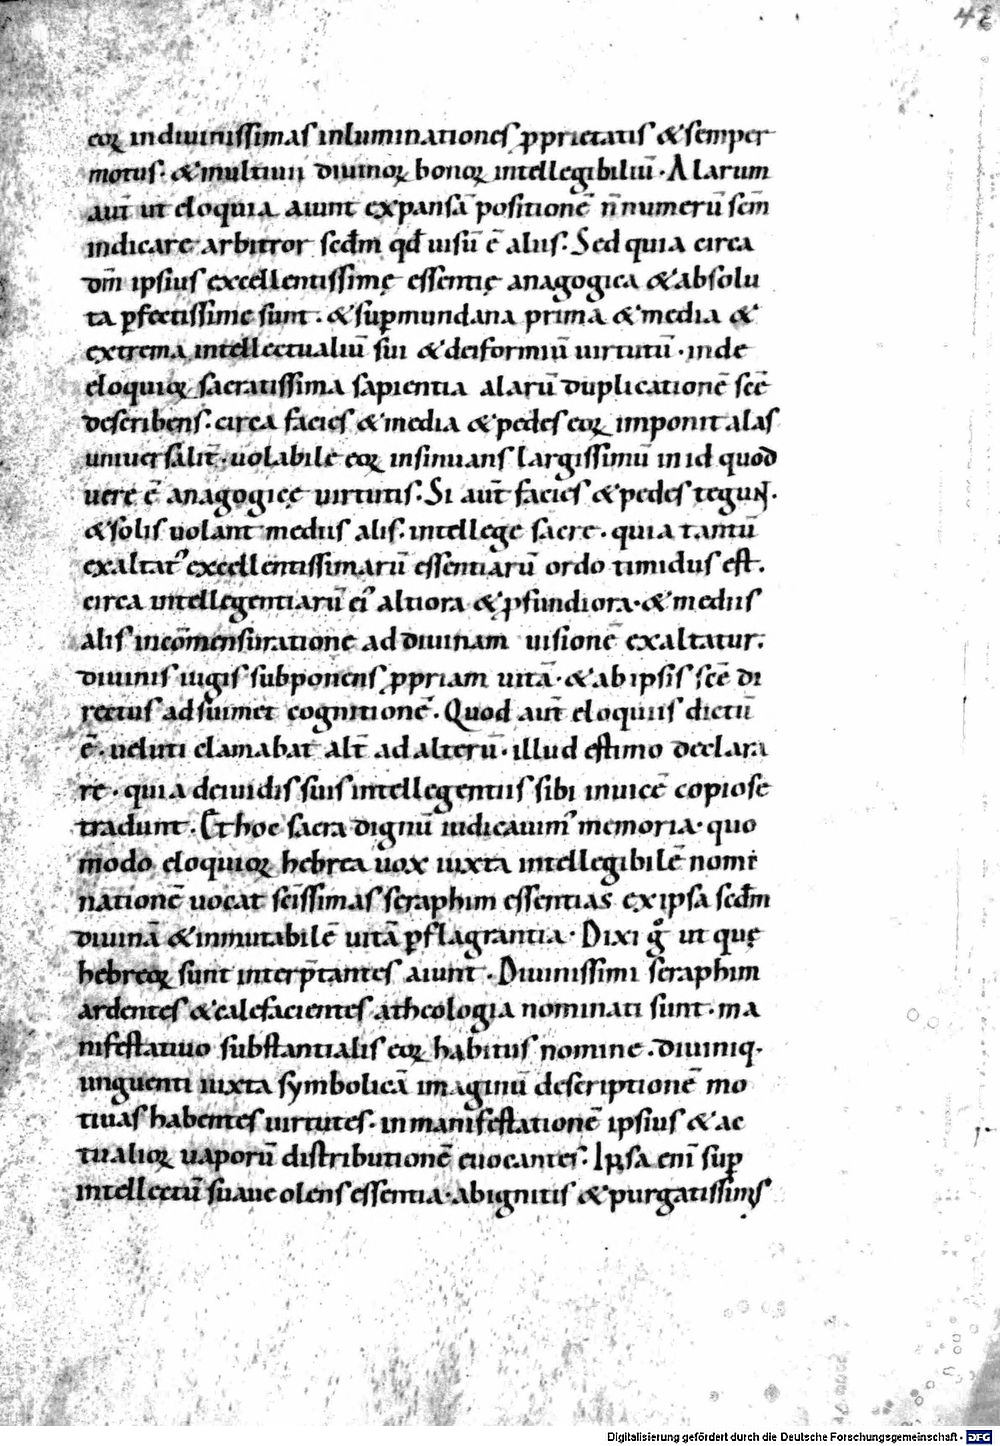 42
eoꝝ indiuinissimas inluminationes ꝓprietatis & semper
motus. & multiuii diuinoꝝ bonoꝝ intellegibiliū. Alarum
aut̄ ut eloquia aiunt expansā positionē n̄ numerū scm̄
indicare arbitror scd̄m qd̄ uisū ē aliis. Sed quia circa
dm̄ ipsius excellentissimę essentię anagogica & absolu
ta ꝑfectissime sunt. & suꝑmundana prima & media &
extrema intellectualiū sui & deiformiū uirtutū. inde
eloquioꝝ sacratissima sapientia alarū duplicationē scē
describens. circa facies & media & pedes eoꝝ imponit alas
uniuersalit̄. uolabile eoꝝ insinuans largissimū in id quod
uere ē anagogicę uirtutis. Si aut̄ facies & pedes tegunt.
& solis uolant mediis alis. intellege sacre. quia tantū
exaltatꝰ excellentissimarū essentiarū ordo timidus est.
circa intellegentiarū eiꝰ altiora & ꝓfundiora. & mediis
alis incōmensuratione ad diuinam uisionē exaltatur.
diuinis iugis subponens ꝓpriam uitā. & ab ipsis scē di
rectus ad suimet cognitionē. Quod aut̄ eloquiis dictū
ē. ueluti clamabat alt̄ ad alterū. illud estimo declara
re. quia deiuidis suis intellegentiis sibi inuicē copiose
tradunt. Et hoc sacra dignū iudicauimꝰ memoria. quo
modo eloquioꝝ hebrea uox iuxta intellegibilē nomi
nationē uocat sc̄issimas seraphim essentias ex ipsa scd̄m
diuinā & inmutabilē uitā ꝑflagrantia. Dixi gͦ ut quę
hebreoꝝ sunt interp̄tantes aiunt. Diuinissimi seraphim
ardentes & calefacientes a theologia nominati sunt. ma
nifestatiuo substantialis eoꝝ habitus nomine. diuiniq.
unguenti iuxta symbolicā imaginū descriptionē mo
tiuas habentes uirtutes. in manifestationē ipsius & ac
tualioꝝ uaporū distributionē euocantes. Ipsa eni suꝑ
intellectū suaue olens essentia. ab ignitis & purgatissimis
Digitalisierung gefördert durch die Deutsche Forschungsgemeinschaft - DFG